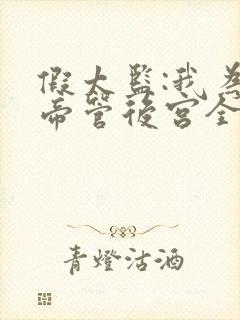 假太监:我为
帝管後宫全
青燈沽酒